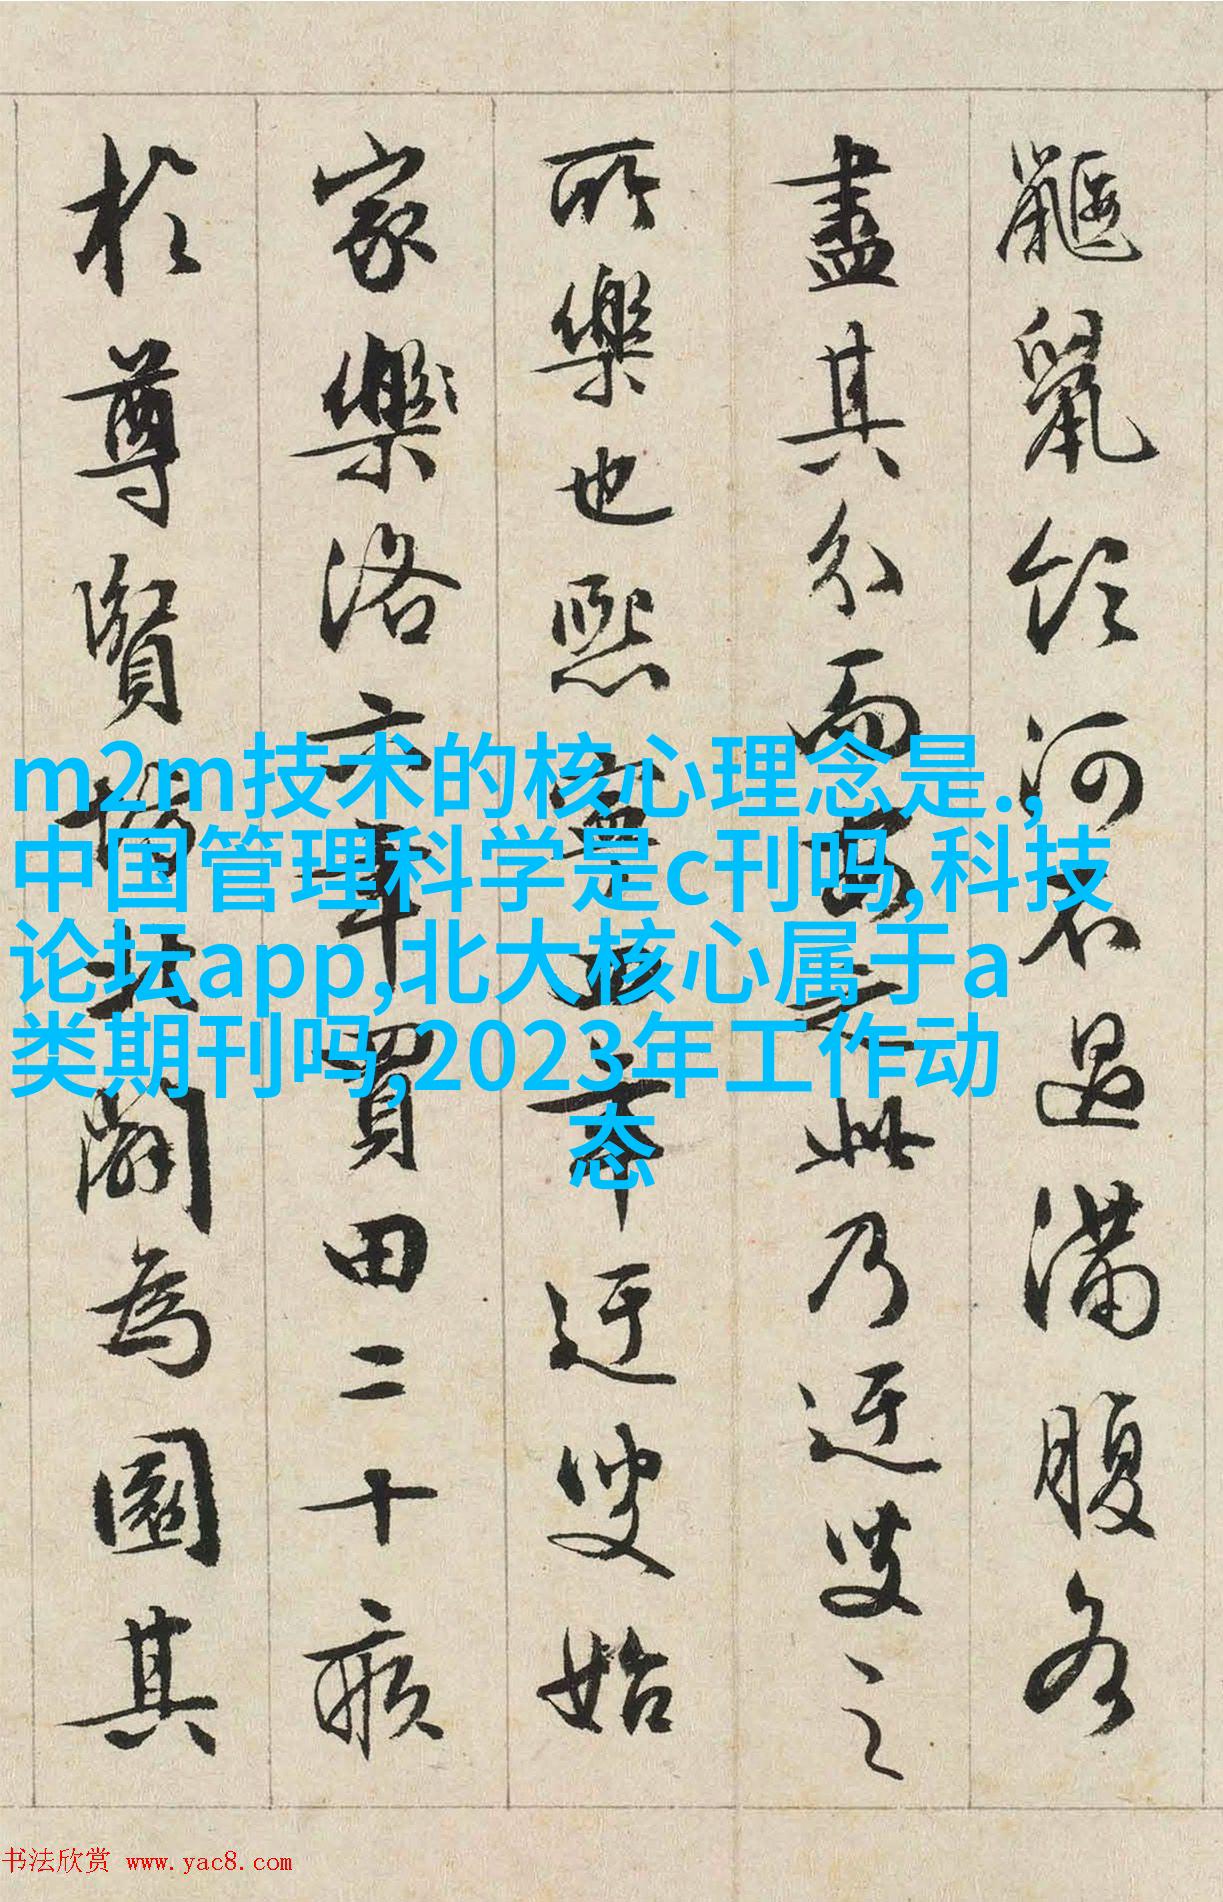 鼴鼠飲河不過滿腹各
盡其分而安之此乃迂叟之
所樂也熙寧四年迂叟始
家樂洛六年買田二十畝
於尊賢坊北闢為園其
m2m技术的核心理念是.,
中国管理科学是c刊吗,科技
论坛app,北大核心属于a
类期刊吗,2023年工作动
态
书法欣赏 www.yac8.com